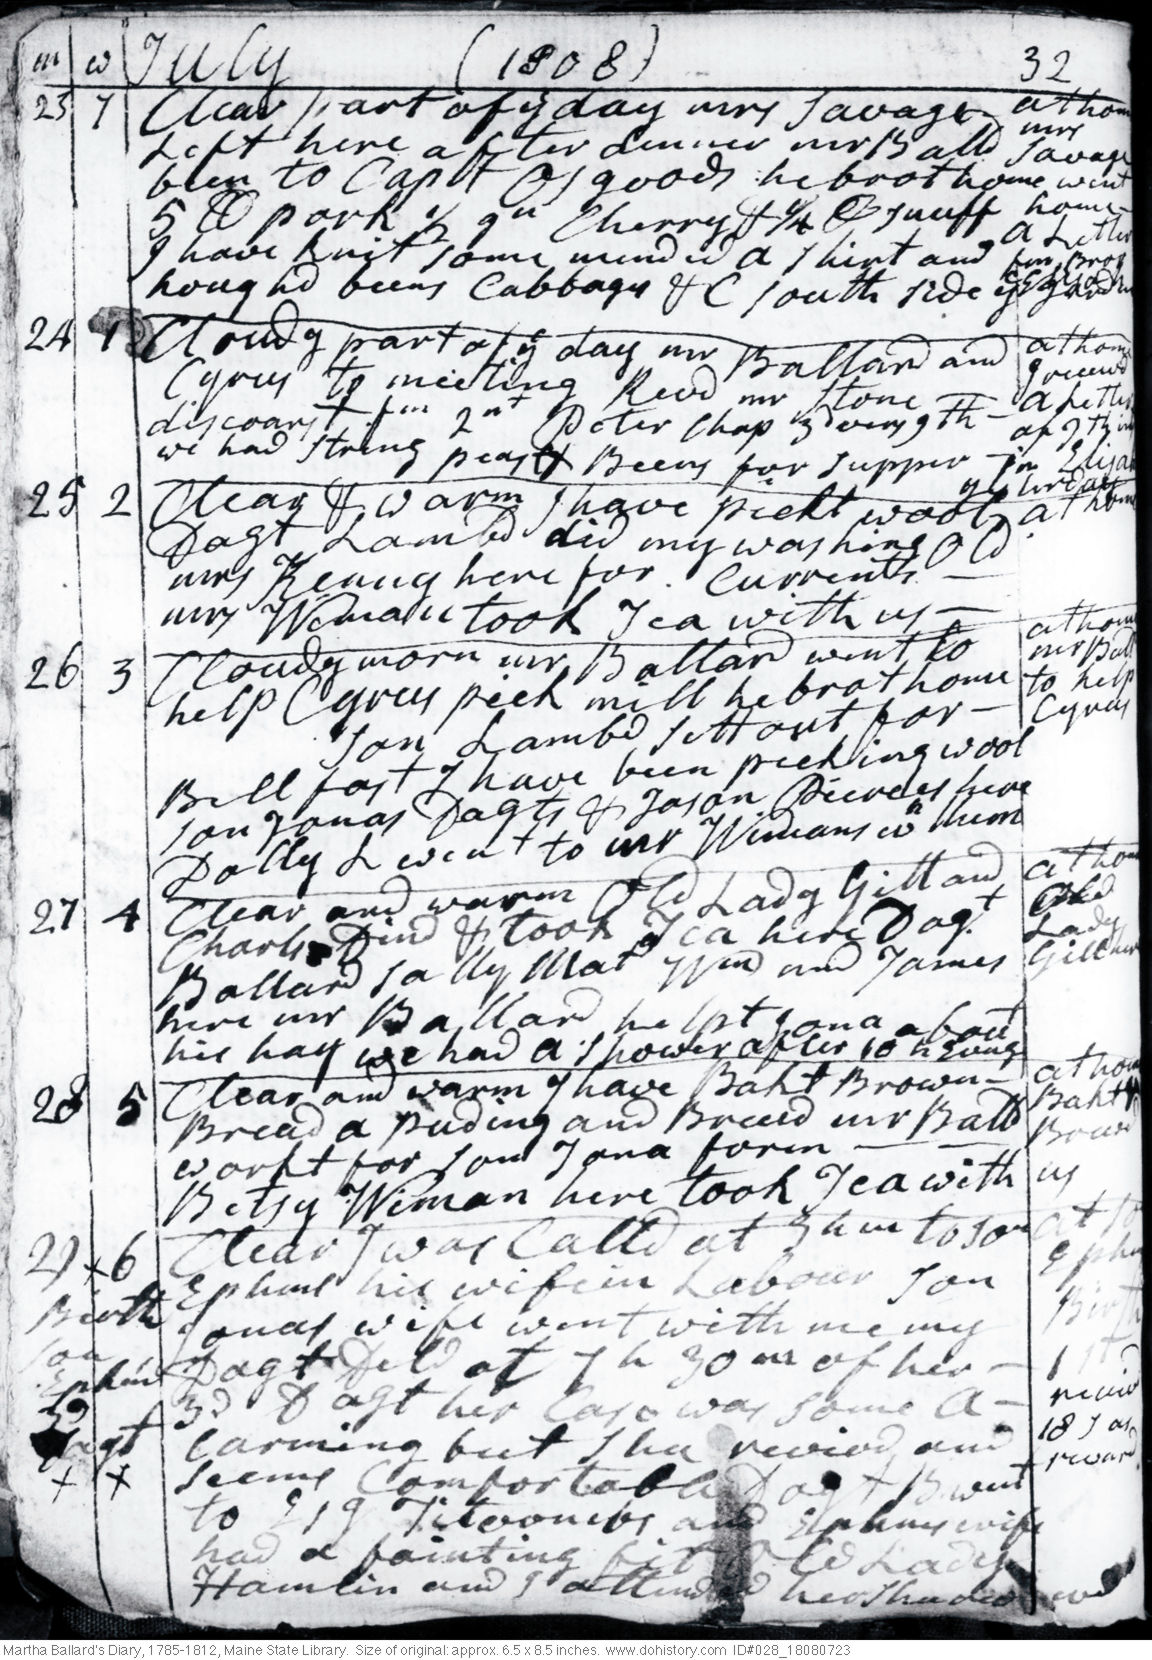 m w July (1808) 32
23 7 Clear part of ye day mrs Savage at home
Left here after dinner mr Balld mrs Savage
been to Capt Osgoods he brot home went
5 lb pork ½ qn Cherry & ¼ lb snuff home
I have knit some mended a shirt and a Letter
hough'd beens Cabbages &C south side ye gardn
24 1 Cloudy part of ye day mr Ballard and at home
Cyrus to meeting Revd mr Stone I receivd
discoarst fm 2nt Peter Chap 3d vers 9th a Letter
we had string peas & Beens for supper fm Elijah
yesterday
25 2 Clear & warm I have pickt wool at home
Dagt Lambd did my washing Old
mrs Kenney here for Currents
mrs Wiman took Tea with us
26 3 Cloudy morn mr Ballard went to at home
help Cyrus pick mill he brot home mr Ball
son Lambd sett out for to help
Bellfast I have been pecking wool Cyrus
son Jonas Dagts & Jason Pierces here
Dolly L went to mr Wimans wn them
27 4 Clear and warm Old Lady Gill and at home
Charls Dind & took Tea here Dagt Old
Ballard Sally Mat Wm and James Lady
here mr Ballard helpt Jona about Gill here
his hay we had a shower after 10 h Evng
28 5 Clear and warm I have Bakt Brown at home
Bread a puding and Breud mr Balld Bakt
workt for son Jona forin Breud
Betsy Wiman here took Tea with us
29 x 6 Clear I was Calld at 3 h m to son at
Birth Ephms his wife in Labour son Ephm
son Jonas wife went with me my Birth
Ephm Dagt Deld at 7 h 30 m of her
3d 3d Dagt her Case was some a- receivd
Dagt larming but shee revivd and 18/ as
x x seems Comfortable Dagt B went reward
to Esq Titcombs and Ephms wife
had a fainting fit Old Lady
Hamlin and I attended her
Martha Ballard's Diary, 1785-1812, Maine State Library. Size of original: approx. 6.5 x 8.5 inches. www.dohistory.com ID#028_18080723